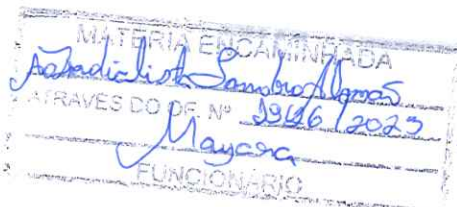 MATÉRIA ENCAMINHADA
Ao Radialista Sandro Alemão
ATRAVÉS DO OF. Nº /2023
Mayara
FUNCIONÁRIO